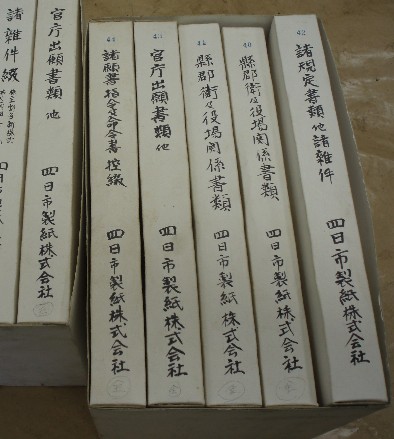 42
諸規定書類他諸雑件
四日市製紙株式会社
40
縣郡衙及役場関係書類
四日市製紙株式会社
縣郡衙及役場関係書類
四日市製紙株式会社
43
官庁出願書類 他
四日市製紙株式会社
44
諸願書指令定命令書控綴
四日市製紙株式会社
官庁出願書類 他
四日市製紙株式会社
諸雑件綴
四日市製紙株式会社